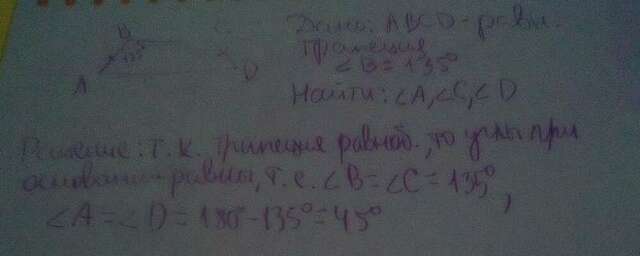 Дано: ABCD - равн.
трапеция
∠B = 135°
Найти: ∠A, ∠C, ∠D
B
C
135°
A
D
Решение: т.к. трапеция равноб., то углы при
основании равны, т.е. ∠B = ∠C = 135°,
∠A = ∠D = 180° - 135° = 45°